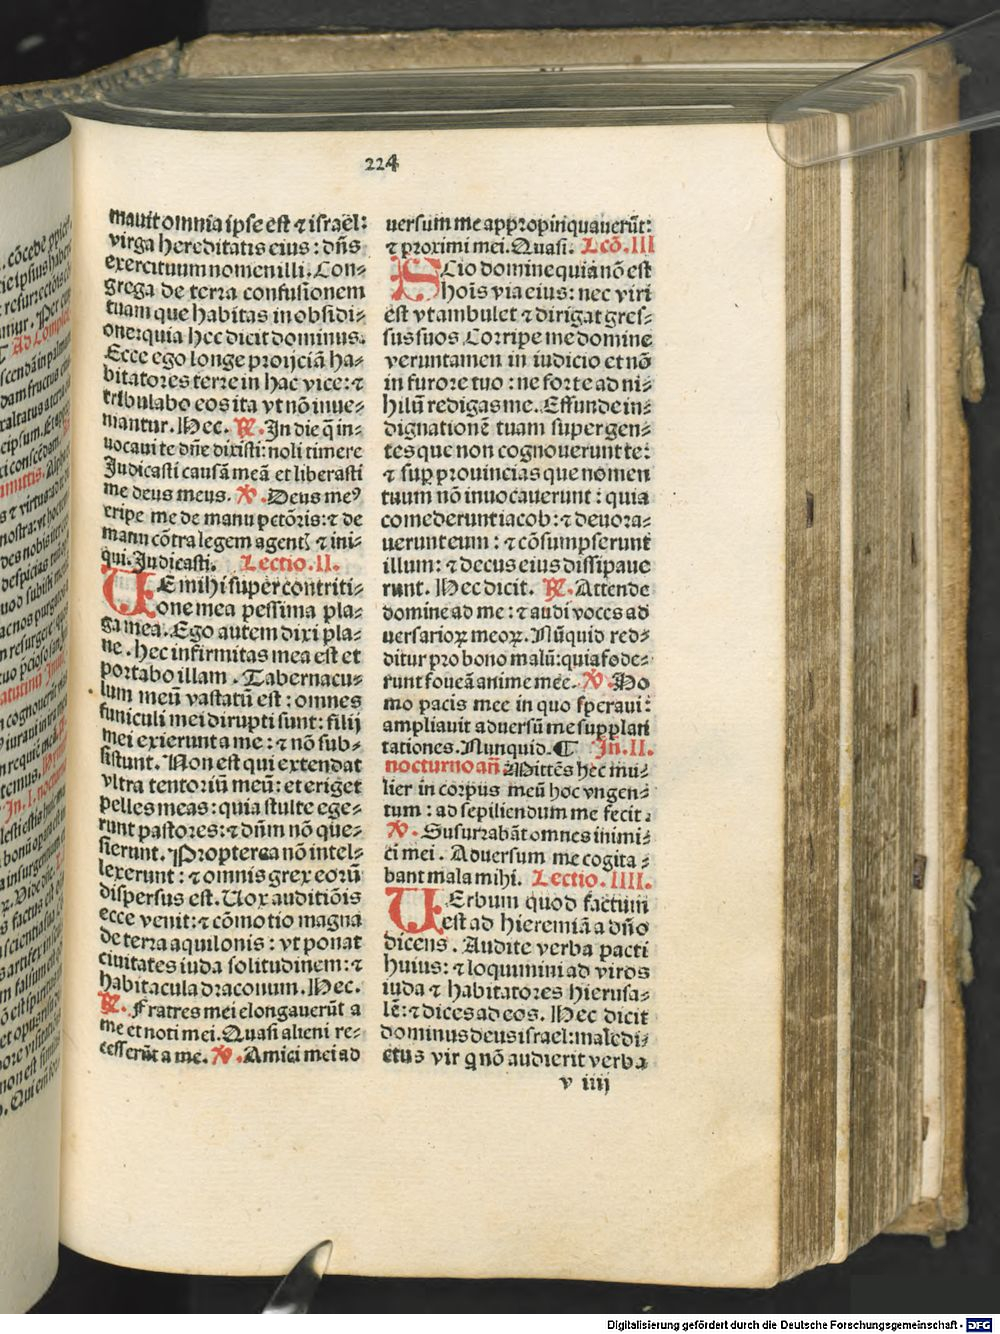 224
mauit omnia ipse est ⁊ israel:
virga hereditatis eius: dn̄s
exercituum nomen illi. Con⸗
grega de terra confusionem
tuam que habitas in obsidi⸗
one: quia hec dicit dominus.
Ecce ego longe proijciā ha⸗
bitatores terre in hac vice: ⁊
tribulabo eos ita vt nō inue⸗
niantur. Hec. ℟. In die q̄ in⸗
uocaui te dn̄e dixisti: noli timere
Judicasti causā meā et liberasti
me deus meus. ℣. Deus meꝰ
eripe me de manu petōris: ⁊ de
manu cōtra legem agentꝭ ⁊ ini⸗
qui. Judicasti. Lectio. II.
UE mihi super contriti⸗
one mea pessima pla⸗
ga mea. Ego autem dixi pla⸗
ne. hec infirmitas mea est et
portabo illam. Tabernacu⸗
lum meū vastatū est: omnes
funiculi mei dirupti sunt: filij
mei exierunt a me: ⁊ nō sub⸗
sistunt. Non est qui extendat
vltra tentoriū meū: et eriget
pelles meas: quia stulte ege⸗
runt pastores: ⁊ dn̄m nō que⸗
sierunt. Propterea nō intel⸗
lexerunt: ⁊ omnis grex eorū
dispersus est. Uox auditiōis
ecce venit: ⁊ cōmotio magna
de terra aquilonis: vt ponat
ciuitates iuda solitudinem: ⁊
habitacula draconum. Hec.
℟. Fratres mei elongauerūt a
me et noti mei. Quasi alieni re⸗
cesserūt a me. ℣. Amici mei ad
uersum me appropinquauerūt:
⁊ proximi mei. Quasi. Lcō. III
SCio domine quia nō est
hoīs via eius: nec viri
est vt ambulet ⁊ dirigat gres⸗
sus suos. Corripe me domine
veruntamen in iudicio et nō
in furore tuo: ne forte ad ni⸗
hilū redigas me. Effunde in⸗
dignationē tuam super gen⸗
tes que non cognouerunt te:
⁊ suꝑ prouincias que nomen
tuum nō inuocauerunt: quia
comederunt iacob: ⁊ deuora⸗
uerunt eum: ⁊ cōsumpserunt
illum: ⁊ decus eius dissipaue
runt. Hec dicit. ℟. Attende
domine ad me: ⁊ audi voces ad
uersarioꝝ meoꝝ. Nūquid red⸗
ditur pro bono malū: quia fode⸗
runt foueā anime mee. ℣. Ho
mo pacis mee in quo speraui:
ampliauit aduersū me supplan
tationes. Nunquid. ¶ In. II.
nocturno an̄ Mittēs hec mu⸗
lier in corpus meū hoc vngen⸗
tum: ad sepiliendum me fecit.
℣. Susurrabāt omnes inimi⸗
ci mei. Aduersum me cogita⸗
bant mala mihi. Lectio. IIII.
UErbum quod factum
est ad hieremiā a dn̄o
dicens. Audite verba pacti
huius: ⁊ loquimini ad viros
iuda ⁊ habitatores hierusa⸗
lē: ⁊ dices ad eos. Hec dicit
dominus deus israel: maledi⸗
ctus vir q̇ nō audierit verba
v iiij
Digitalisierung gefördert durch die Deutsche Forschungsgemeinschaft - DFG